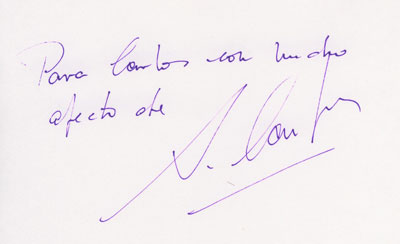 Para Carlos con mucho
afecto de